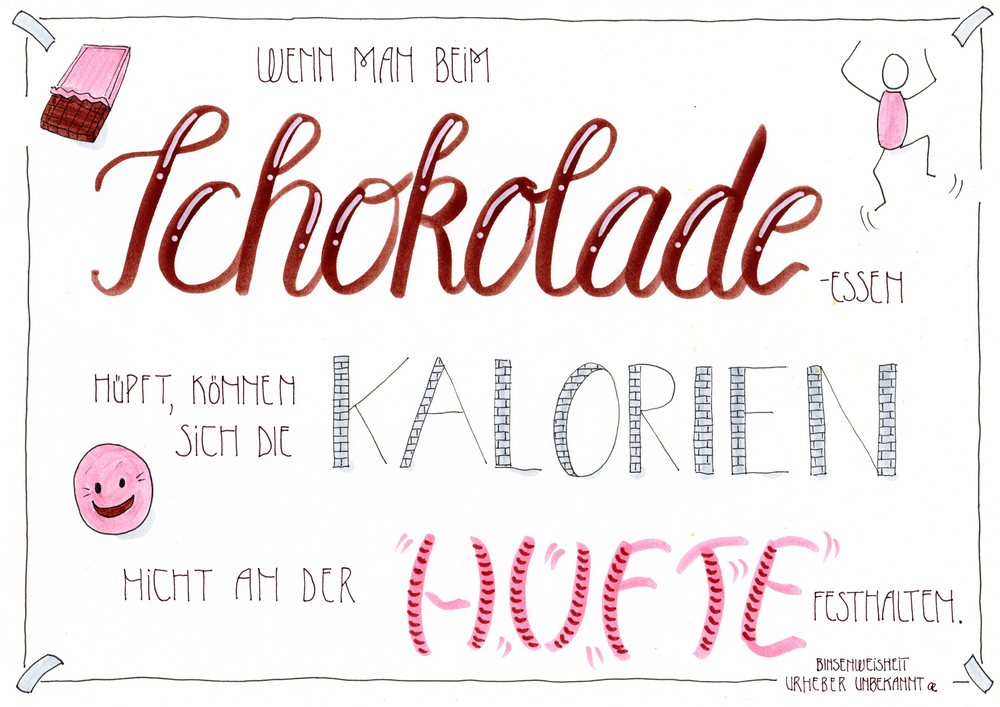 WENN MAN BEIM
Schokolade
-ESSEN
HÜPFT, KÖNNEN
SICH DIE
KALORIEN
NICHT AN DER
HÜFTE
FESTHALTEN.
BINSENWEISHEIT
URHEBER UNBEKANNT